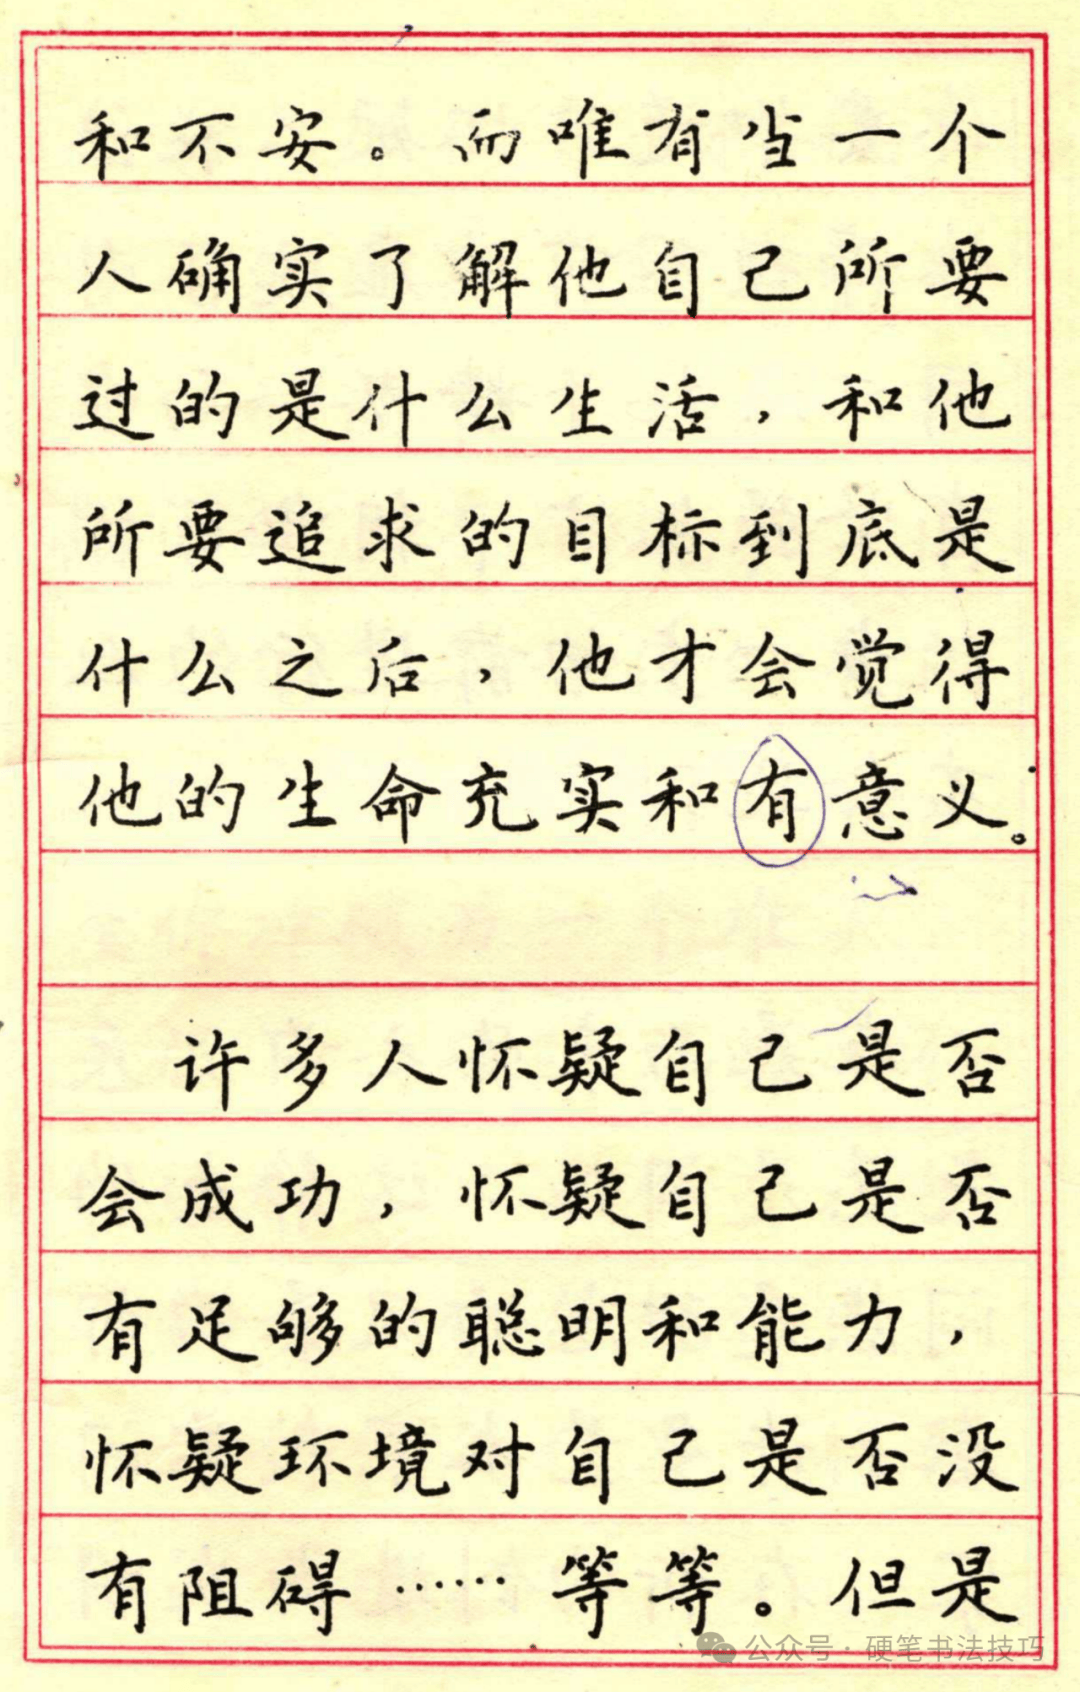 和不安。而唯有当一个
人确实了解他自己所要
过的是什么生活，和他
所要追求的目标到底是
什么之后，他才会觉得
他的生命充实和有意义。
许多人怀疑自己是否
会成功，怀疑自己是否
有足够的聪明和能力，
怀疑环境对自己是否没
有阻碍……等等。但是
公众号·硬笔书法技巧